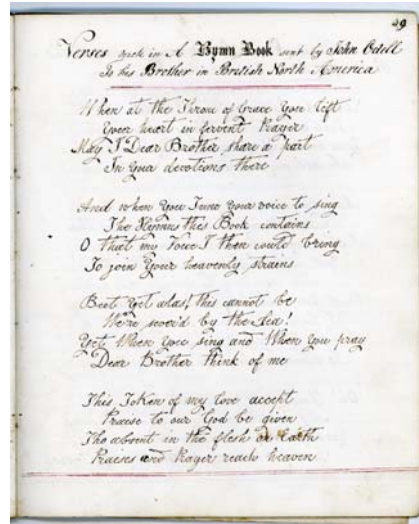 29
Verses wrote in A Hymn Book sent by John Odell
To his Brother in British North America
When at the Throne of Grace You lift
Your heart in fervent Prayer
May I Dear Brother share a part
In Your devotions there
And when You Tune Your voice to sing
The Hymns this Book contains
O that my Voice I then could bring
To join Your heavenly strains
But Yet alas! this cannot be
We're sever'd by the Sea!
Yet When You sing and When You pray
Dear Brother think of me
This Token of my love accept
Praise to our God be given
Tho absent in the flesh on Earth
Praises and Prayer reach heaven